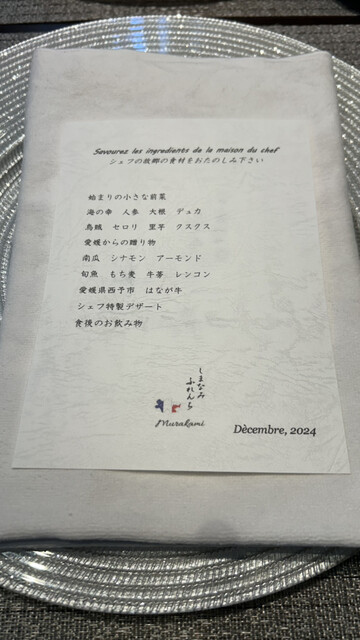 Savourez les ingredients de la maison du chef
シェフの故郷の食材をおたのしみ下さい
始まりの小さな前菜
海の幸 人参 大根 デュカ
烏賊 セロリ 里芋 クスクス
愛媛からの贈り物
南瓜 シナモン アーモンド
旬魚 もち麦 牛蒡 レンコン
愛媛県西予市 はなが牛
シェフ特製デザート
食後のお飲み物
しまなみ
ふれんち
Murakami
Dècembre, 2024